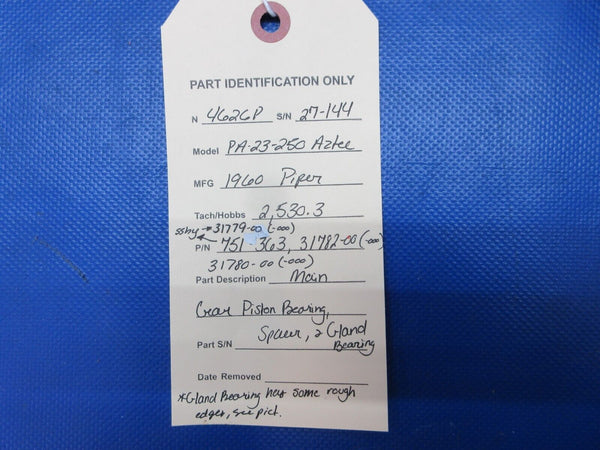 PART IDENTIFICATION ONLY
N 4626P S/N 27-144
Model PA-23-250 Aztec
MFG 1960 Piper
Tach/Hobbs 2,530.3
ssby → 31779-00 (-000)
P/N 751-363, 31782-00 (-000)
31780-00 (-000)
Part Description Main
Gear Piston Bearing,
Spacer, & Gland
Part S/N Bearing
Date Removed
*Gland Bearing has some rough
edges, see pict.